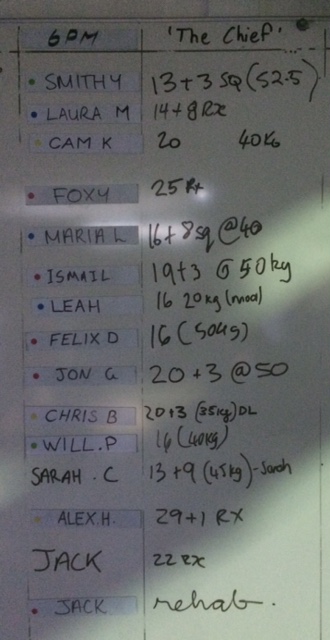 6PM 'The Chief'
SMITHY 13+3 SQ (52.5)
LAURA M 14+8 Rx
CAM K 20 40KG
FOXY 25 Rx
MARIA L 16+8 sq @40
ISMAIL 19+3 @ 50kg
LEAH 16 20kg (mod)
FELIX D 16 (50kg)
JON G 20+3 @50
CHRIS B 20+3 (35kg) DL
WILL.P 16 (40kg)
SARAH.C 13+9 (45kg)-Sarah
ALEX.H. 29+1 RX
JACK 22 RX
JACK rehab.